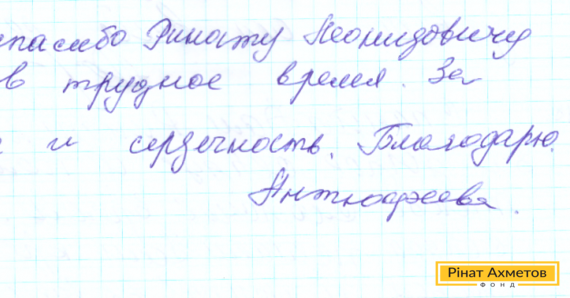 спасибо Ринату Леонидовичу
в трудное время. За
и сердечность. Благодарю.
Рінат Ахметов
ФОНД